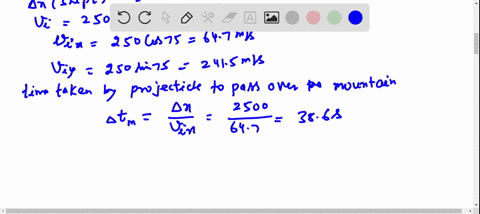 Δx (ship
Vi = 250
Vix = 250 Cos 75 = 64.7 m/s
Viy = 250 Sin 75 = 241.5 m/s
time taken by projecticle to pass over mountain
Δtm = Δx / Vix = 2500 / 64.7 = 38.6 s